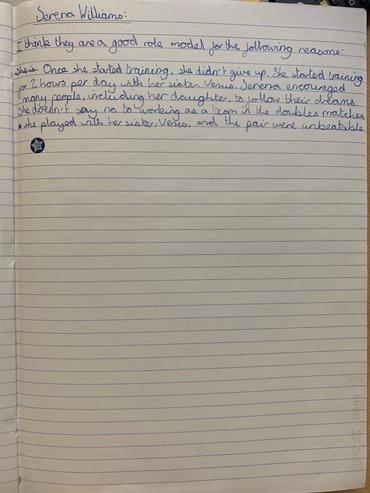 Serena Williams:
I think they are a good role model for the following reasons:
She is Once she started training, she didn't give up. She started training
for 2 hours per day with her sister Venus. Serena encouraged
many people, including her daughter, to follow their dreams.
She doesn't say no to working as a team in the doubles matches
she played with her sister, Venus, and the pair were unbeatable